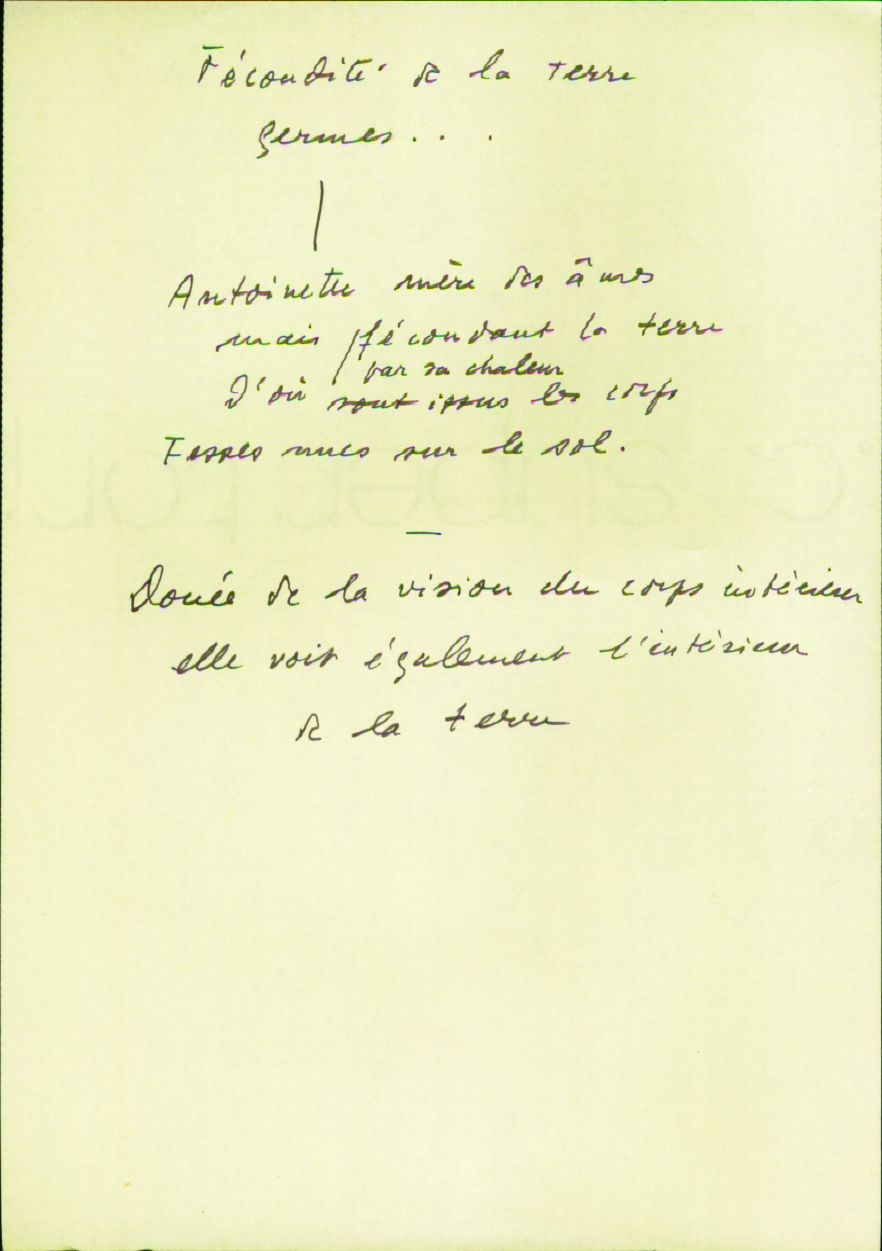 Fécondité de la terre
germes...
Antoinette mère des âmes
mais fécondant la terre
par sa chaleur
d'où sont issus les corps
Fesses nues sur le sol.
Douée de la vision du corps intérieur
elle voit également l'intérieur
de la terre